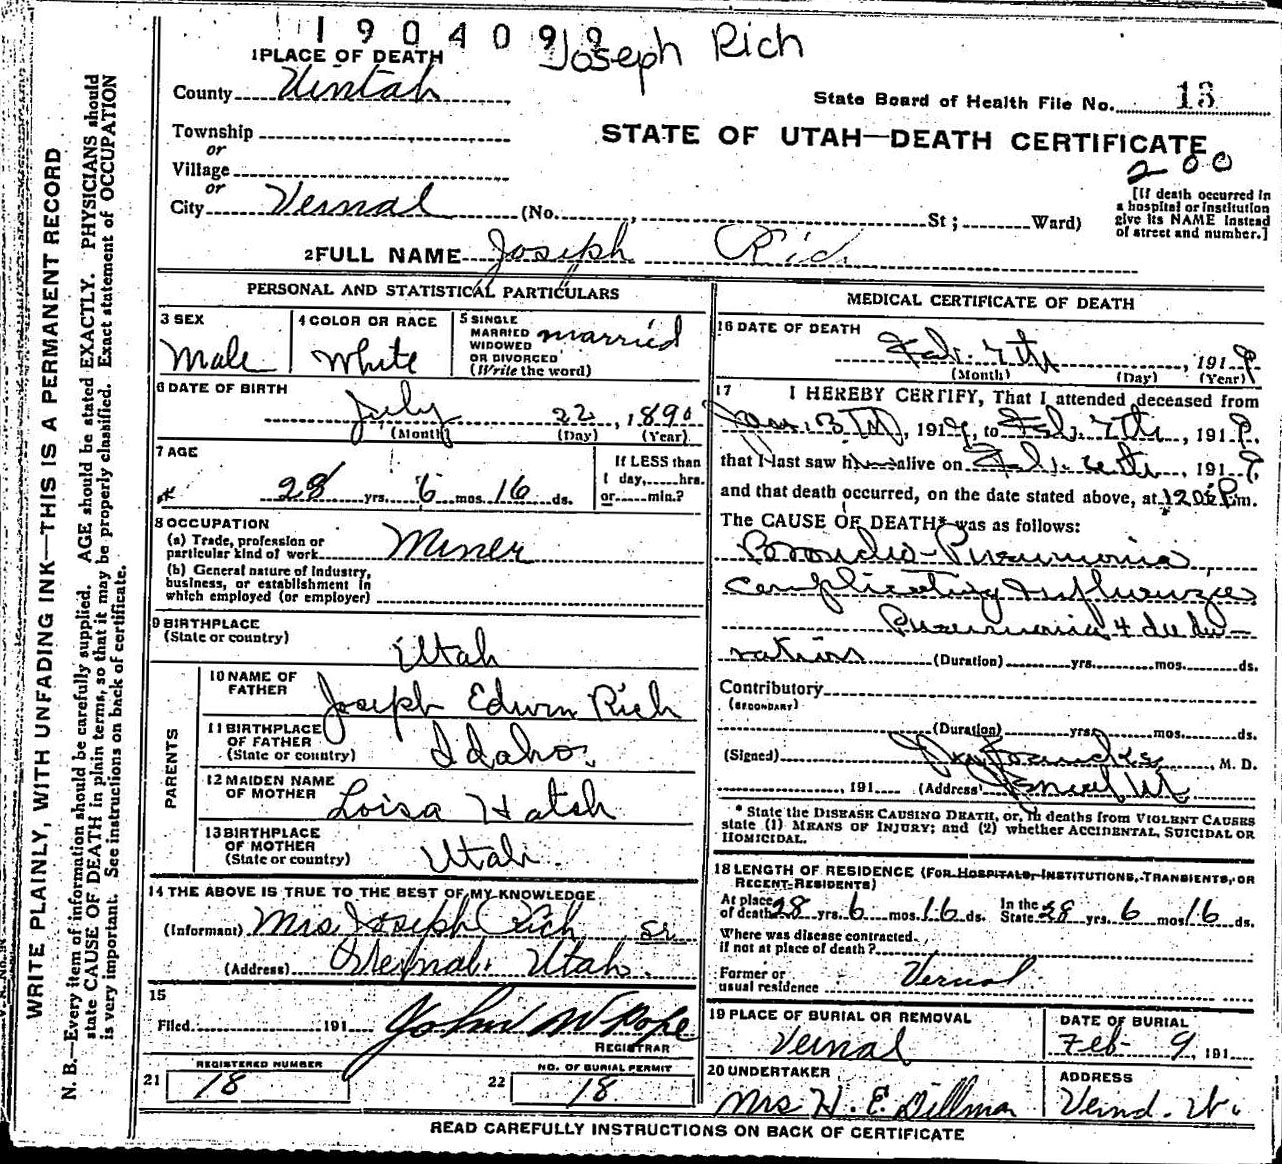 1904099 Joseph Rich
1 PLACE OF DEATH
County Uintah
State Board of Health File No. 13
Township
or
STATE OF UTAH—DEATH CERTIFICATE
200
Village
or
City Vernal (No. , St; Ward)
[If death occurred in a hospital or institution give its NAME instead of street and number.]
2 FULL NAME Joseph Rich
PERSONAL AND STATISTICAL PARTICULARS
3 SEX
Male
4 COLOR OR RACE
White
5 SINGLE
MARRIED
WIDOWED
OR DIVORCED
(Write the word)
married
6 DATE OF BIRTH
July 22, 1890
(Month) (Day) (Year)
7 AGE
28 yrs. 6 mos. 16 ds.
If LESS than
1 day, hrs.
or min.?
8 OCCUPATION
(a) Trade, profession or
particular kind of work Miner
(b) General nature of industry,
business, or establishment in
which employed (or employer)
9 BIRTHPLACE
(State or country)
Utah
PARENTS
10 NAME OF
FATHER
Joseph Edwin Rich
11 BIRTHPLACE
OF FATHER
(State or country)
Idaho.
12 MAIDEN NAME
OF MOTHER
Loisa Hatch
13 BIRTHPLACE
OF MOTHER
(State or country)
Utah.
14 THE ABOVE IS TRUE TO THE BEST OF MY KNOWLEDGE
(Informant) Mrs Joseph Rich Sr.
(Address) Vernal. Utah.
15
Filed 191 John N Pope
REGISTRAR
REGISTERED NUMBER
21 18
NO. OF BURIAL PERMIT
22 18
MEDICAL CERTIFICATE OF DEATH
16 DATE OF DEATH
Feb. 7th, 1919
(Month) (Day) (Year)
17 I HEREBY CERTIFY, That I attended deceased from
Jan. , 1919, to Feb. 7th, 1919.
that I last saw h alive on Feb. , 1919.
and that death occurred, on the date stated above, at m.
The CAUSE OF DEATH* was as follows:
Broncho-Pneumonia
complicating Influenza
Pneumonia 4 da du-
ration (Duration) yrs. mos. ds.
Contributory
(SECONDARY)
(Duration) yrs. mos. ds.
(Signed) M. D.
, 191 (Address)
* State the DISEASE CAUSING DEATH, or, in deaths from VIOLENT CAUSES
state (1) MEANS OF INJURY; and (2) whether ACCIDENTAL, SUICIDAL OR
HOMICIDAL.
18 LENGTH OF RESIDENCE (FOR HOSPITALS, INSTITUTIONS, TRANSIENTS, OR
RECENT RESIDENTS)
At place of death 28 yrs. 6 mos. 16 ds. In the State 28 yrs. 6 mos. 16 ds.
Where was disease contracted,
if not at place of death?
Former or
usual residence Vernal
19 PLACE OF BURIAL OR REMOVAL
Vernal
DATE OF BURIAL
Feb 9, 191
20 UNDERTAKER
Mrs H. E. Dillman
ADDRESS
Vernal. Ut.
READ CAREFULLY INSTRUCTIONS ON BACK OF CERTIFICATE
WRITE PLAINLY, WITH UNFADING INK—THIS IS A PERMANENT RECORD
N. B.—Every item of information should be carefully supplied. AGE should be stated EXACTLY. PHYSICIANS should
state CAUSE OF DEATH in plain terms, so that it may be properly classified. Exact statement of OCCUPATION
is very important. See instructions on back of certificate.